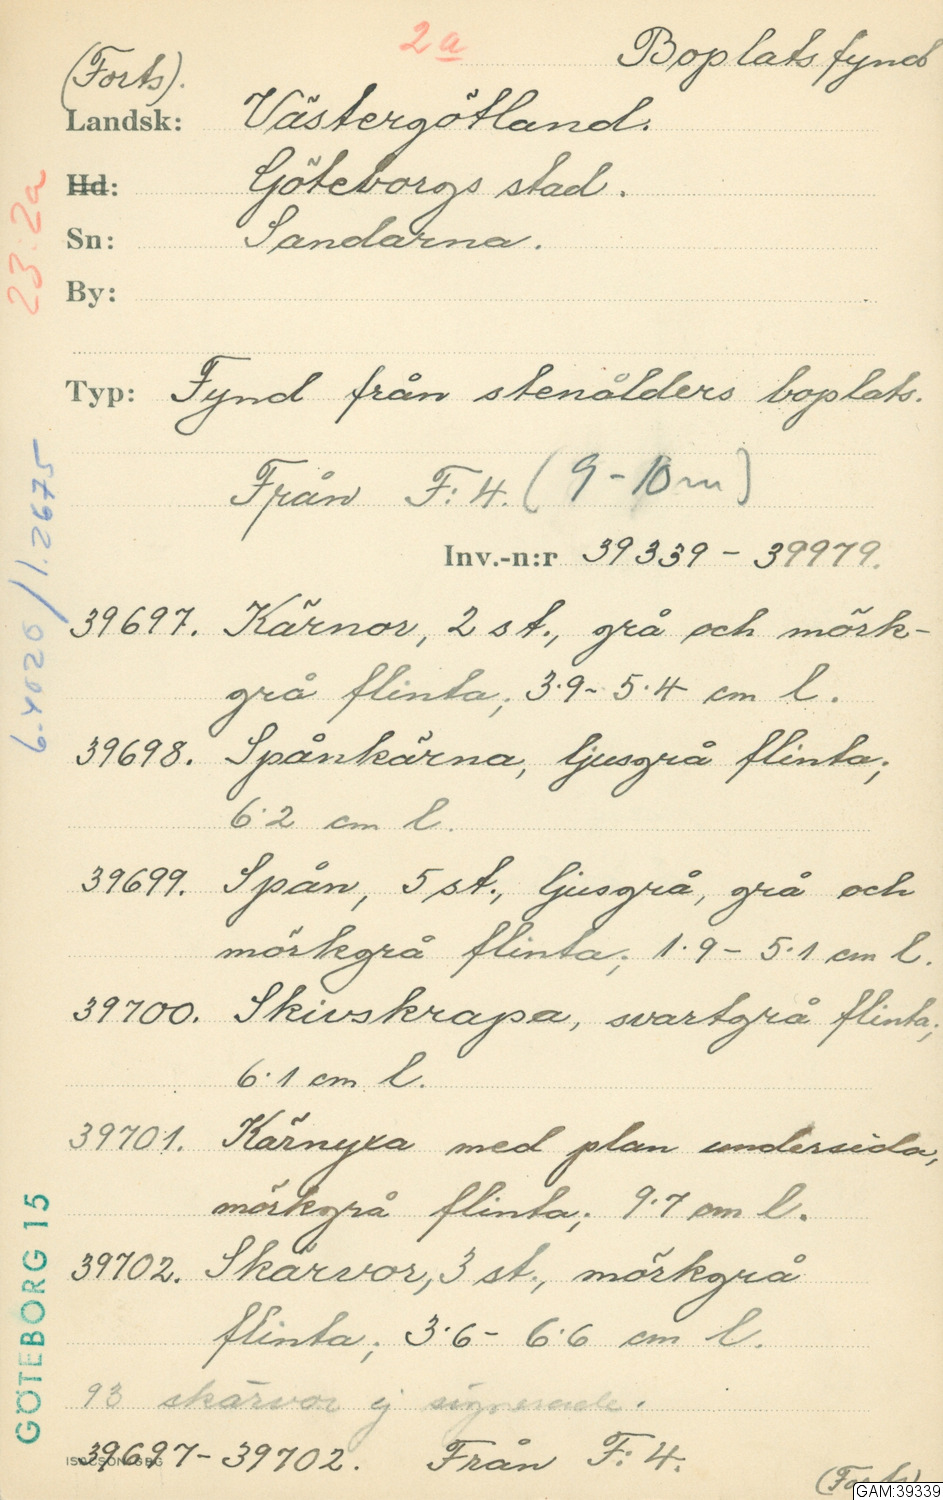 2a
Boplatsfynd
(Forts).
Landsk: Västergötland.
Hd: Göteborgs stad.
Sn: Sandarna.
By:
Typ: Fynd från stenålders boplats.
Från F: 4. (9-10m)
Inv.-n:r 39339 - 39979.
39697. Kärnor, 2 st., grå och mörk-
grå flinta; 3·9- 5·4 cm l.
39698. Spånkärna, ljusgrå flinta;
6·2 cm l.
39699. Spån, 5 st., ljusgrå, grå och
mörkgrå flinta; 1·9- 5·1 cm l.
39700. Skivskrapa, svartgrå flinta;
6·1 cm l.
39701. Kärnyxa med plan undersida,
mörkgrå flinta; 9·7 cm l.
39702. Skärvor, 3 st., mörkgrå
flinta; 3·6- 6·6 cm l.
93 skärvor ej signerade.
39697-39702. Från F: 4.
ISACSON GBG
(Forts)
GAM:39339
23:2a
6.4020/1.2675
GÖTEBORG 15